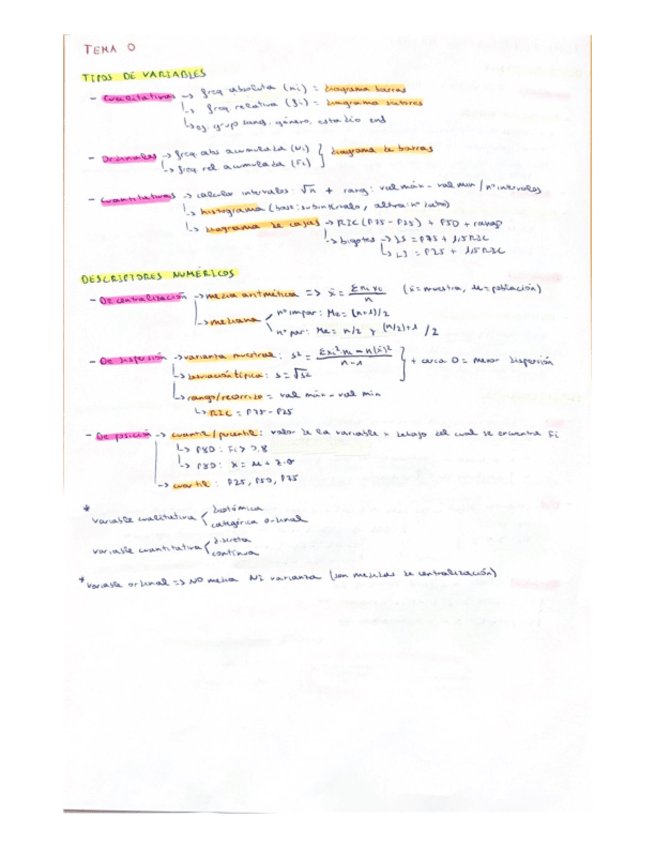 TEMA 0
TIPOS DE VARIABLES
- Cualitativas → freq absoluta (ni) = diagrama barras
↳ freq relativa (fi) = diagrama sectores
↳ ej. grup sang. género, estadio enf
- Ordinales → freq abs acumulada (Ni) } diagrama de barras
↳ freq rel acumulada (Fi)
- Cuantitativas → calcular intervalos: √n + rang: val máx - val min / nº intervalos
↳ histograma (base: subintervalo, altura: nº
↳ diagrama de cajas → RIC (P75 - P25) + P50 + rango
↳ bigotes → LS = P75 + 1,5 RIC
↳ LI = P25 + 1,5 RIC
DESCRIPTORES NUMÉRICOS
- De centralización → media aritmética => x̄ = Σ ni xi / n (x̄ = muestra, μ = población)
↳ mediana < nº impar: Me = (n+1)/2
nº par: Me = n/2 y (n/2)+1 /2
- De dispersión → varianza muestral: s² = Σxi² ni - n(x̄)² / n-1 } + cerca 0 = menor dispersión
↳ desviación típica: s = √s²
↳ rango/recorrido = val máx - val min
↳ RIC = P75 - P25
- De posición → cuantil/percentil: valor de la variable x debajo del cual se encuentra Fi
↳ P80: Fi > 0.8
↳ P80: x = μ + z·σ
→ cuartil: P25, P50, P75
* variable cualitativa < dicotómica
categórica ordinal
variable cuantitativa < discreta
continua
* variable ordinal => NO media NI varianza (son medidas de centralización)